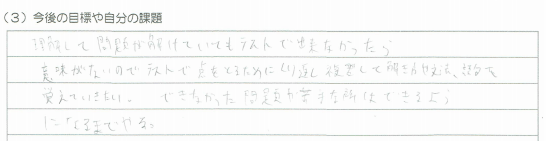 (3) 今後の目標や自分の課題
理解して問題が解けていてもテストで出来なかったら
意味がないのでテストで点をとるためにくり返し復習して解き方や文法、語句を
覚えていきたい。 できなかった問題や苦手な所はできるよう
になるまでやる。